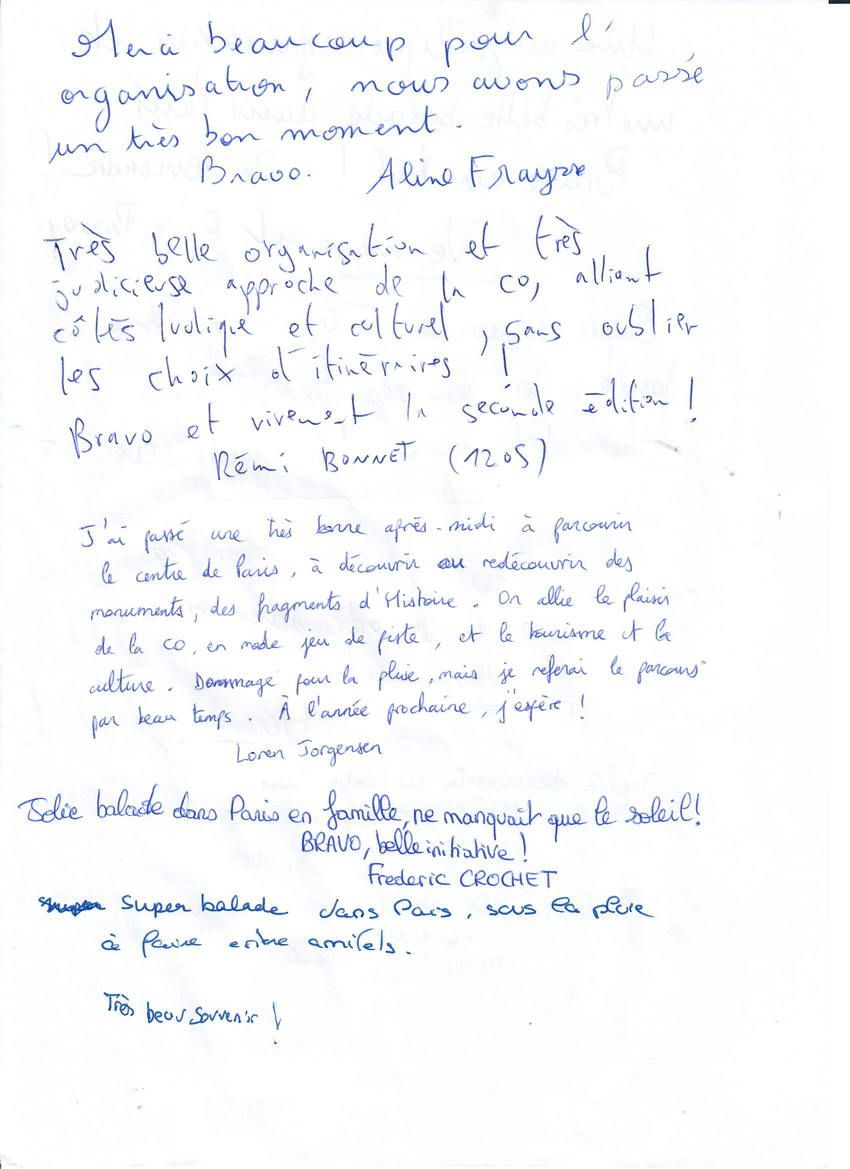 Merci beaucoup pour l'
organisation, nous avons passé
un très bon moment.
Bravo. Aline Fraysse
Très belle organisation et très
judicieuse approche de la CO, alliant
côtés ludique et culturel, sans oublier
les choix d'itinéraires !
Bravo et vivement la seconde édition !
Rémi BONNET (1205)
J'ai passé une très bonne après-midi à parcourir
le centre de Paris, à découvrir ou redécouvrir des
monuments, des fragments d'Histoire. On allie le plaisir
de la CO, en mode jeu de piste, et le tourisme et la
culture. Dommage pour la pluie, mais je referai le parcours
par beau temps. À l'année prochaine, j'espère !
Loren Jorgensen
Jolie balade dans Paris en famille, ne manquait que le soleil !
BRAVO, belle initiative !
Frederic CROCHET
Super balade dans Paris, sous la pluie
à faire entre ami(e)s.
Très beau souvenir !